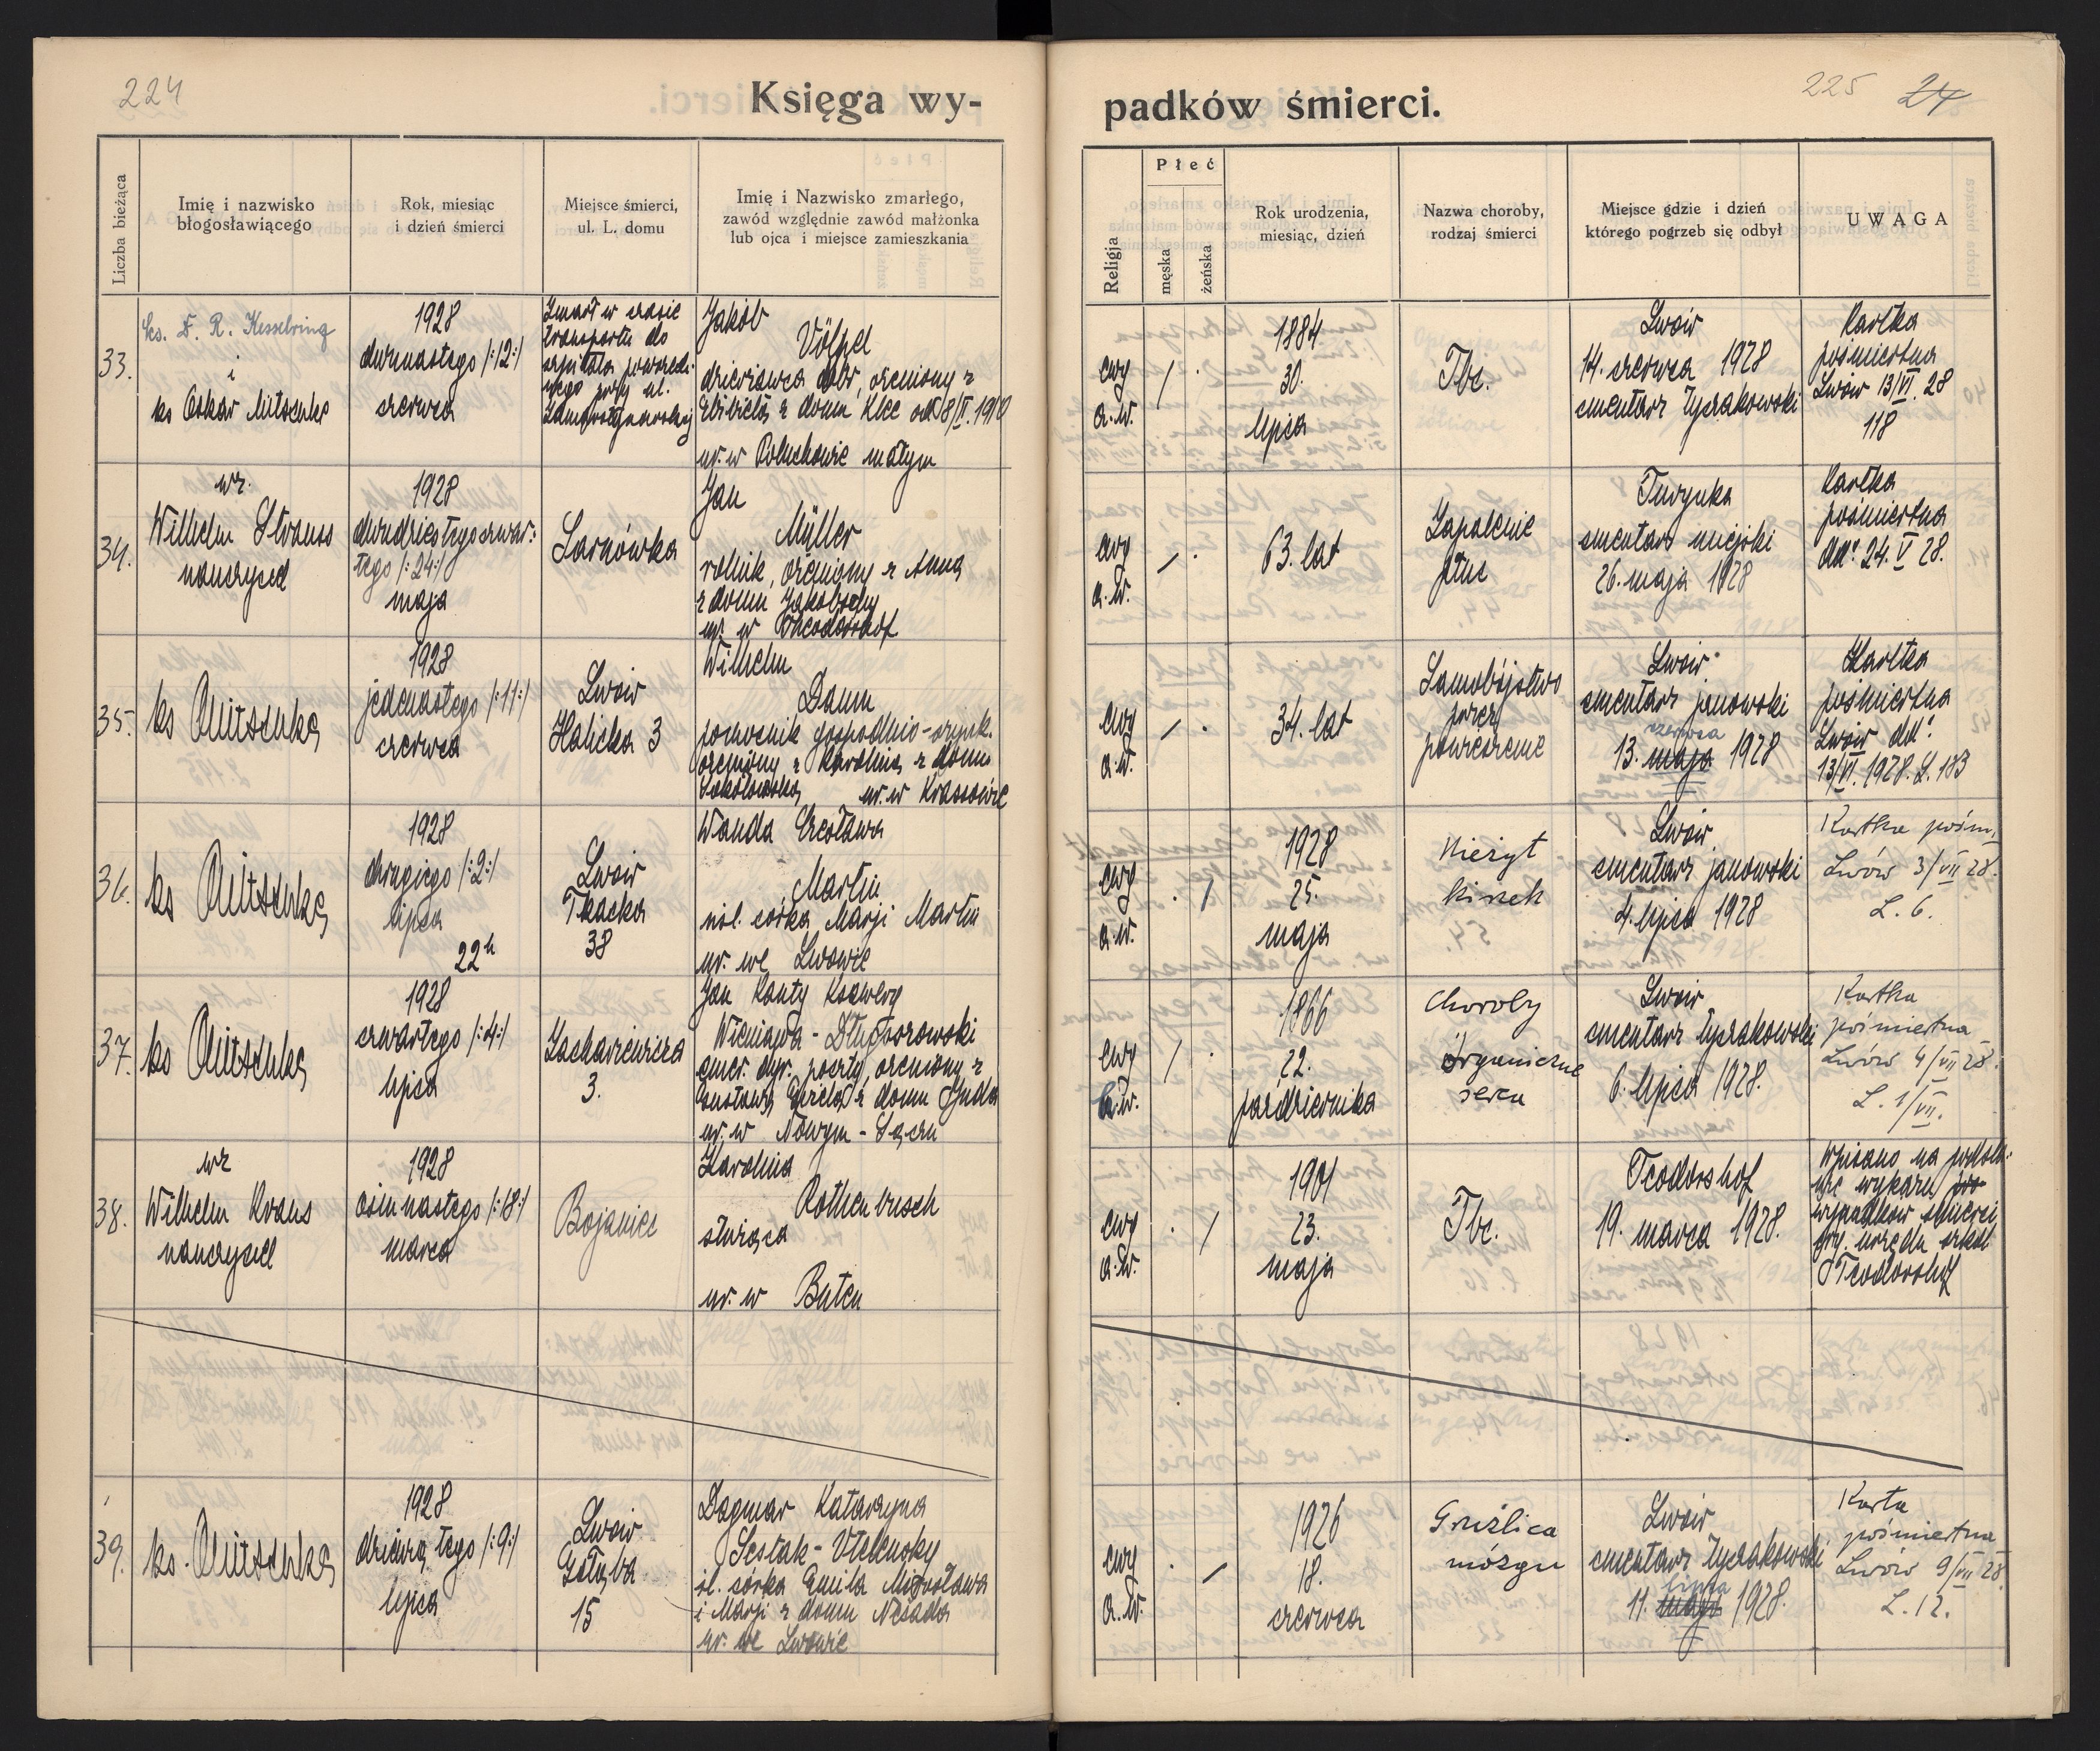 224
Księga wy-
padków śmierci.
225 24
Liczba bieżąca
Imię i nazwisko
błogosławiącego
Rok, miesiąc
i dzień śmierci
Miejsce śmierci,
ul. L. domu
Imię i Nazwisko zmarłego,
zawód względnie zawód małżonka
lub ojca i miejsce zamieszkania
Religja
Płeć
męska
żeńska
Rok urodzenia,
miesiąc, dzień
Nazwa choroby,
rodzaj śmierci
Miejsce gdzie i dzień
którego pogrzeb się odbył
UWAGA
33.
ks. D. R. Kesselring
i
ks Oskar Mitschke
1928
dwunastego /:12:/
czerwca
Zmarł w czasie
transportu do
szpitala powszech-
nego przy ul.
Jakób
Völpel
dzierżawca dóbr, ożeniony z
Elżbietą z domu Klee od 8/II. 1910
ur. w Poluchowie małym
ewg
a.w.
/ .
1884
30.
lipca
Tbc.
Lwów
14. czerwca 1928
cmentarz łyczakowski
Kartka
pośmiertna
Lwów 13/VI. 28
118
34.
wz.
Wilhelm Strauss
nauczyciel
1928
dwudziestegoczwar-
tego /:24:/
maja
Sarnówka
Jan
Müller
rolnik, ożeniony z Anną
z domu Jakobschy
ur. w Theodorshof
ewg
a.w.
/ .
63. lat
Zapalenie
płuc
Turynka
cmentarz miejski
26. maja 1928
Kartka
pośmiertna
dd: 24. V 28.
35.
ks Mitschke
1928
jedenastego /:11:/
czerwca
Lwów
Halicka 3
Wilhelm
Damm
pomocnik gospodnio-szynk.
ożeniony z Karoliną z domu
Sokołowską ur. w Krassowie
ewg
a.w.
/ .
34. lat
Samobójstwo
przez
powieszenie
Lwów
cmentarz janowski
czerwca
13. maja 1928
Kartka
pośmiertna
Lwów dd:
13/VI. 1928. L. 183
36.
ks Mitschke
1928
drugiego /:2:/
lipca
22h
Lwów
Tkacka
38
Wanda Czesława
Martin
nśl. córka Marji Martin
ur. we Lwowie
ewg
a.w.
. /
1928
25.
maja
Nieżyt
kiszek
Lwów
cmentarz janowski
4. lipca 1928
Kartka pośm.
Lwów 3/VII 28.
L. 6.
37.
ks Mitschke
1928
czwartego /:4:/
lipca
Zachariewicza
3.
Jan Kanty Ksawery
Wieniawa - Długoszowski
emer. dyr. poczty, ożeniony z
z domu Juda
ur. w Nowym - Sączu
ewg
a.w.
/ .
1866
22.
października
Choroby
organiczne
serca
Lwów
cmentarz łyczakowski
6. lipca 1928.
Kartka
pośmiertna
Lwów 4/VII 28.
L. 1/VII.
38.
wz
Wilhelm Kraus
nauczyciel
1928
osiemnastego /:18:/
marca
Bojaniec
Karolina
Rothenbusch
służąca
ur. w Butyn
ewg
a.w.
. /
1901
23.
maja
Tbc.
Teodorshof
19. marca 1928.
Wpisano na podsta-
wie wykazu
wypadków śmierci
urzędu szkol
Teodorshof
39.
ks. Mitschke
1928
dziewiątego /:9:/
lipca
Lwów
Gołąba
15
Dagmar Katarzyna
Sestak - Vtelensky
śl. córka Emila Mirosława
i Marji z domu Nesada
ur. we Lwowie
ewg
a.w.
. /
1926
18.
czerwca
Gruźlica
mózgu
Lwów
cmentarz łyczakowski
lipca
11. maja 1928.
Karta
pośmiertna
Lwów 9/VII 28.
L. 12.